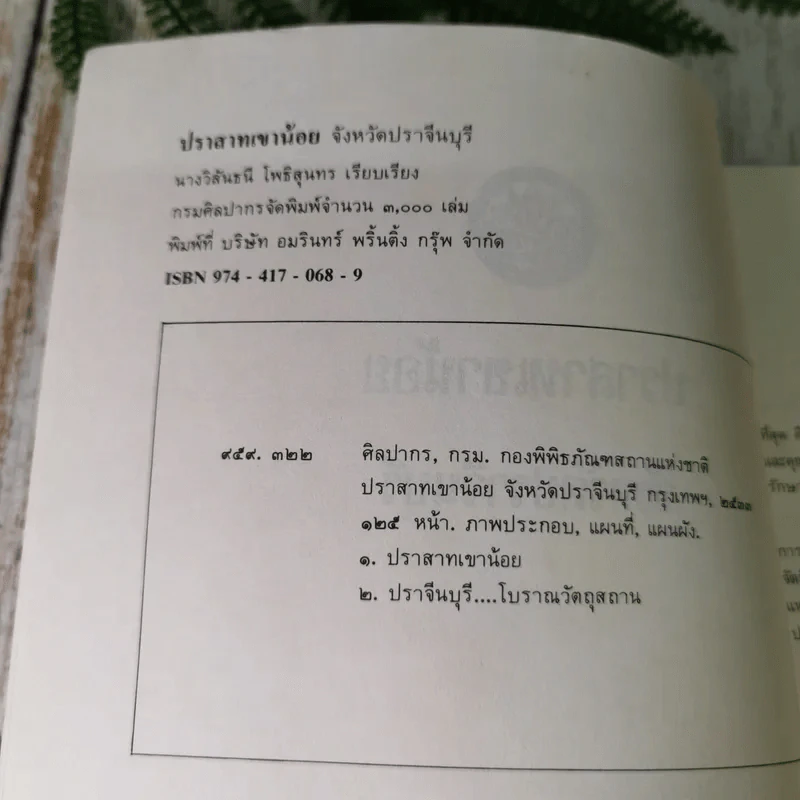 ปราสาทเขาน้อย จังหวัดปราจีนบุรี
นางวิสันธนี โพธิสุนทร เรียบเรียง
กรมศิลปากรจัดพิมพ์จำนวน ๓,๐๐๐ เล่ม
พิมพ์ที่ บริษัท อมรินทร์ พริ้นติ้ง กรุ๊พ จำกัด
ISBN 974 - 417 - 068 - 9
๙๕๙. ๓๒๒ ศิลปากร, กรม. กองพิพิธภัณฑสถานแห่งชาติ
ปราสาทเขาน้อย จังหวัดปราจีนบุรี กรุงเทพฯ, ๒๕๓๓
๑๒๕ หน้า. ภาพประกอบ, แผนที่, แผนผัง.
๑. ปราสาทเขาน้อย
๒. ปราจีนบุรี....โบราณวัตถุสถาน
ที่สุด
และคุณ
รักษา
การ